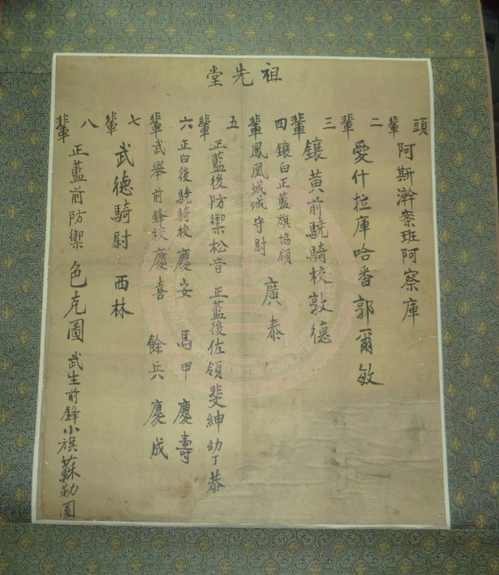 祖先堂
頭輩 阿斯漢案班阿察庫
二輩 愛什拉庫哈番郭爾敏
三輩 鑲黃前驍騎校敦德
四輩 鑲白正藍旗協領 鳳凰城城守尉 廣泰
五輩 正藍後防禦松音 正藍後佐領斐紳 幼丁恭
六輩 正白後驍騎校慶安 馬甲慶壽 武舉前鋒校慶喜 餘兵慶成
七輩 武德騎尉 西林
八輩 正藍前防禦 色克圖 武生前鋒小旗蘇勒圖